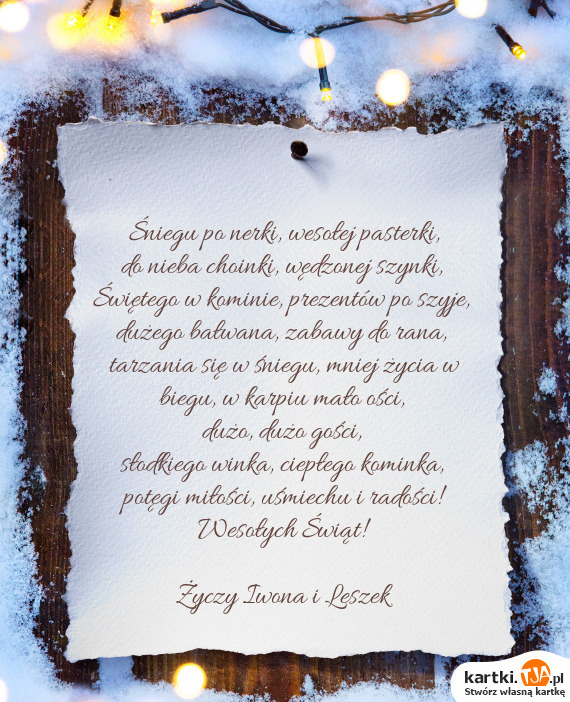 Śniegu po nerki, wesołej pasterki,
do nieba choinki, wędzonej szynki,
Świętego w kominie, prezentów po szyje,
dużego bałwana, zabawy do rana,
tarzania się w śniegu, mniej życia w
biegu, w karpiu mało ości,
dużo, dużo gości,
słodkiego winka, ciepłego kominka,
potęgi miłości, uśmiechu i radości!
Wesołych Świąt!
Życzy Iwona i Leszek
kartki.TJA.pl
Stwórz własną kartkę